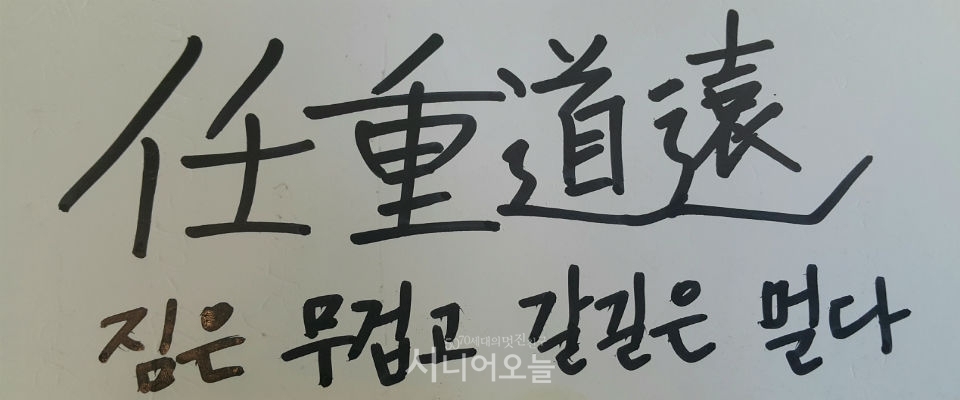 任重道遠
짐은 무겁고 갈길은 멀다
5070세대의 멋진 친구
시니어오늘